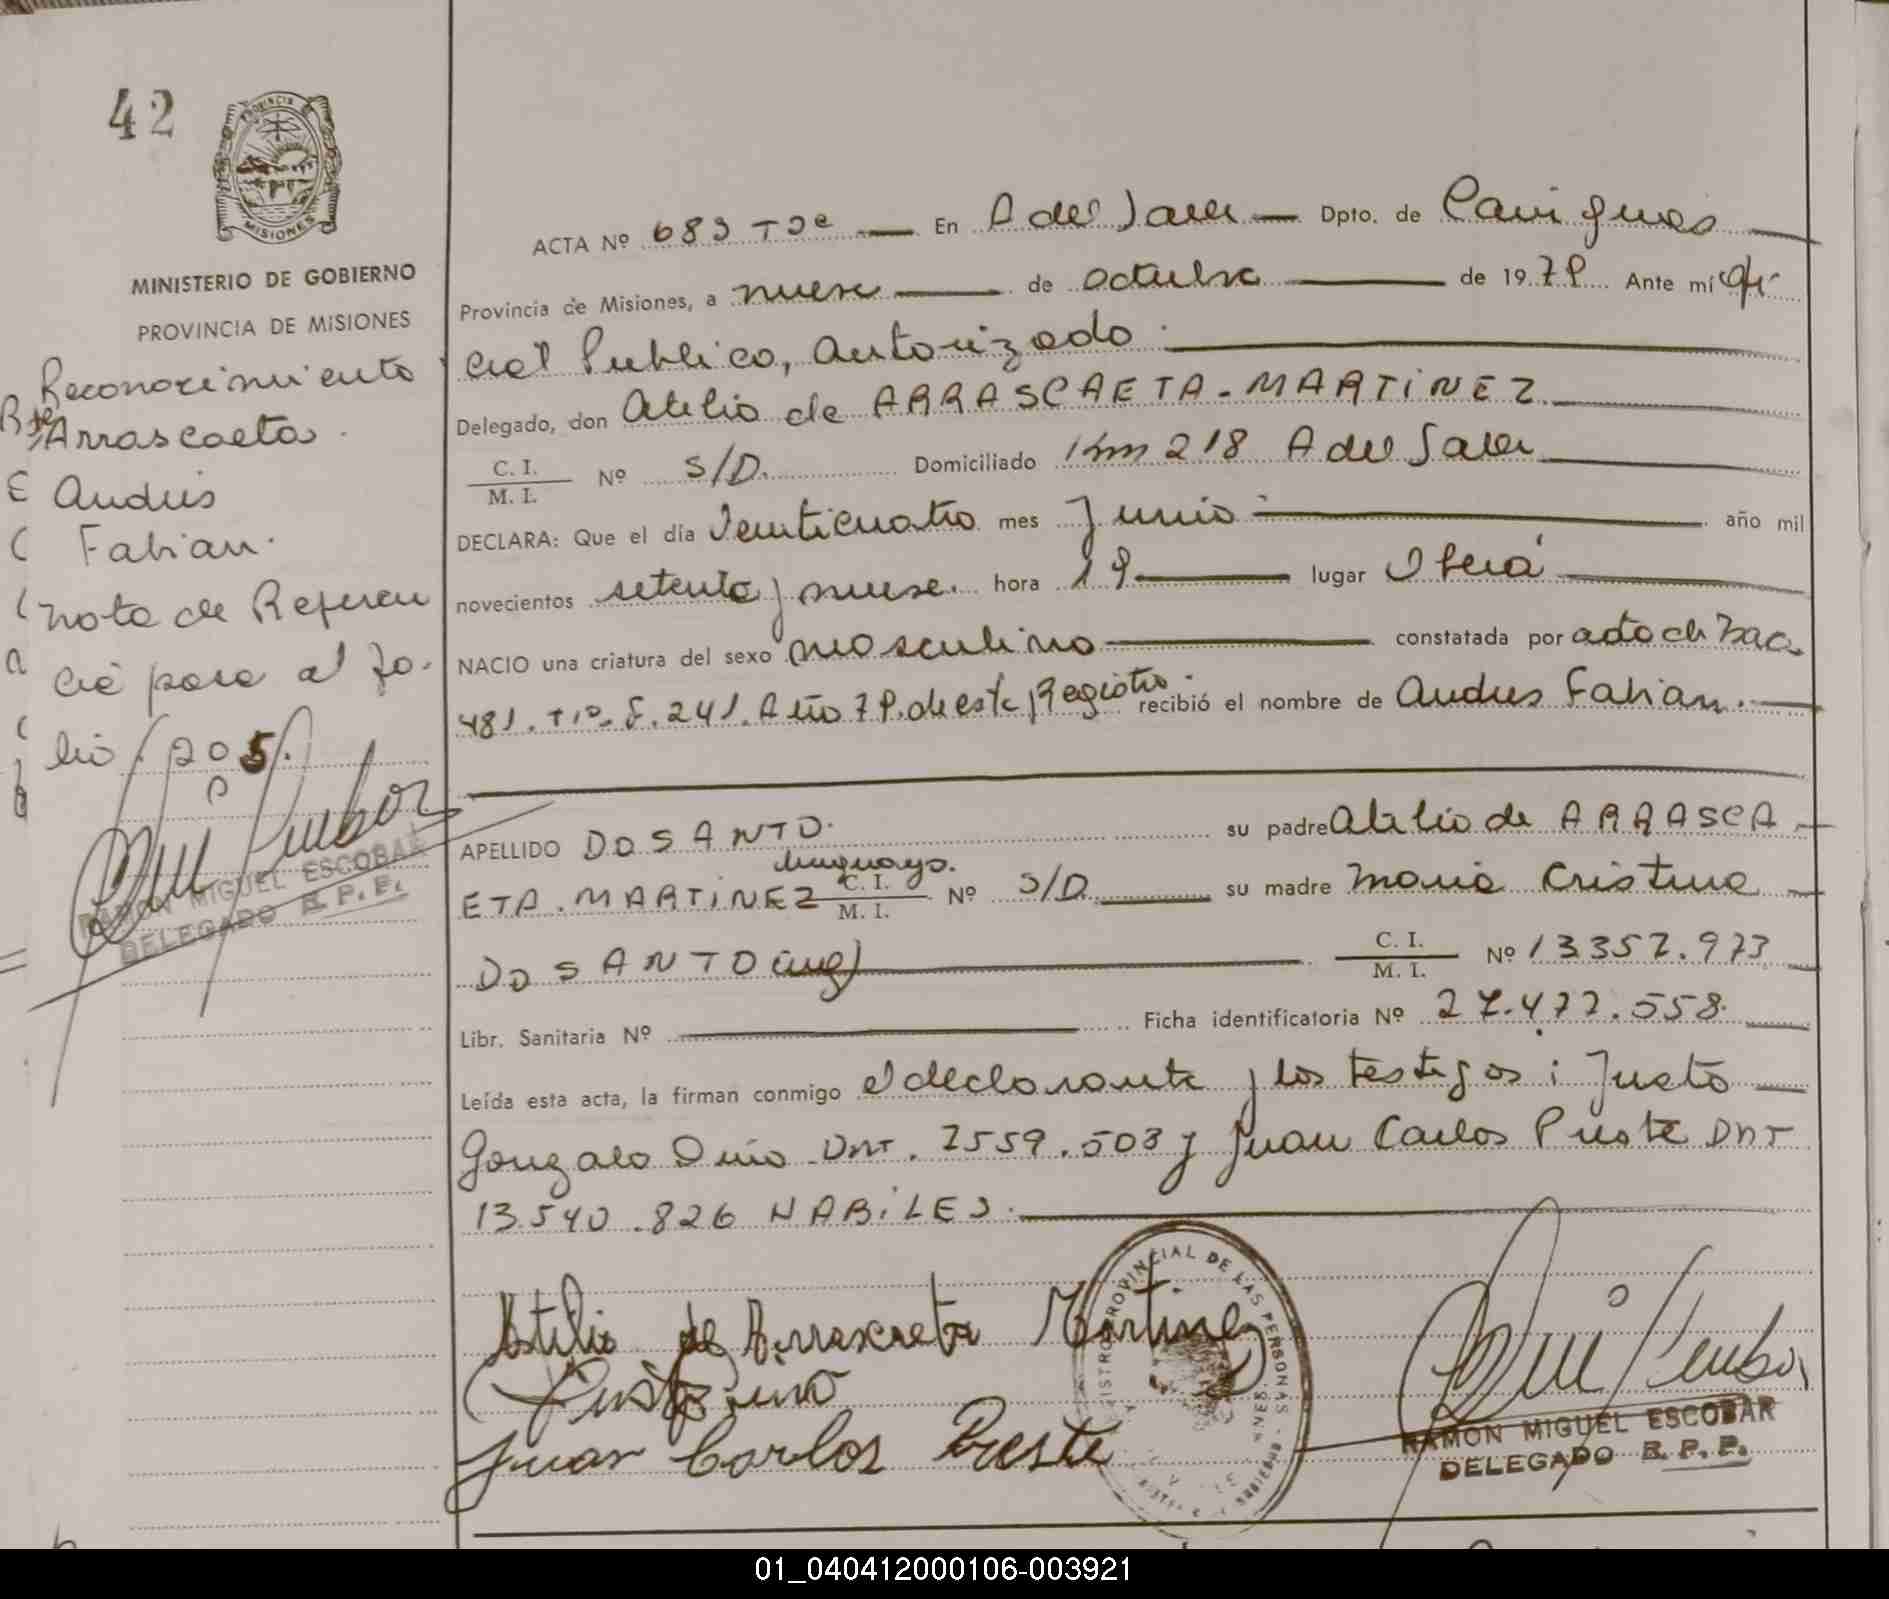 42
PROVINCIA
MISIONES
MINISTERIO DE GOBIERNO
PROVINCIA DE MISIONES
Reconocimiento
Arrascaeta
Andrés
Fabian.
Nota de Referen
cia para al fo-
lio 205
RAMON MIGUEL ESCOBAR
DELEGADO R. P. P.
ACTA Nº 683 T3º En A del Valle Dpto. de Cainguas
Provincia de Misiones, a nueve de octubre de 1979 Ante mí Ofi
cial Publico, Autorizado
Delegado, don Atilio de ARRASCAETA-MARTINEZ
C. I. / M. I. Nº S/D. Domiciliado Km 218 A del Valle
DECLARA: Que el día Veinticuatro mes Junio año mil
novecientos setenta y nueve. hora 19 lugar Oberá
NACIO una criatura del sexo masculino constatada por acta de Nac
481. T1º. F. 241. Año 79. de este Registro recibió el nombre de Andres Fabian.
APELLIDO DOSANTO. su padre Atilio de ARRASCA
ETA.MARTINEZ Uruguayo. C. I. / M. I. Nº S/D. su madre Maria Cristina
DOSANTO (arg) C. I. / M. I. Nº 13.357.973
Libr. Sanitaria Nº Ficha identificatoria Nº 27.477.558.
Leída esta acta, la firman conmigo el declarante y los testigos: Justo
Gonzalo DNI. 7559.503 y Juan Carlos Preste DNI
13.540.826 HABILES.
Atilio de Arrascaeta Martinez
Juan Carlos Preste
REGISTRO PROVINCIAL DE LAS PERSONAS
RAMON MIGUEL ESCOBAR
DELEGADO R. P. P.
01_040412000106-003921